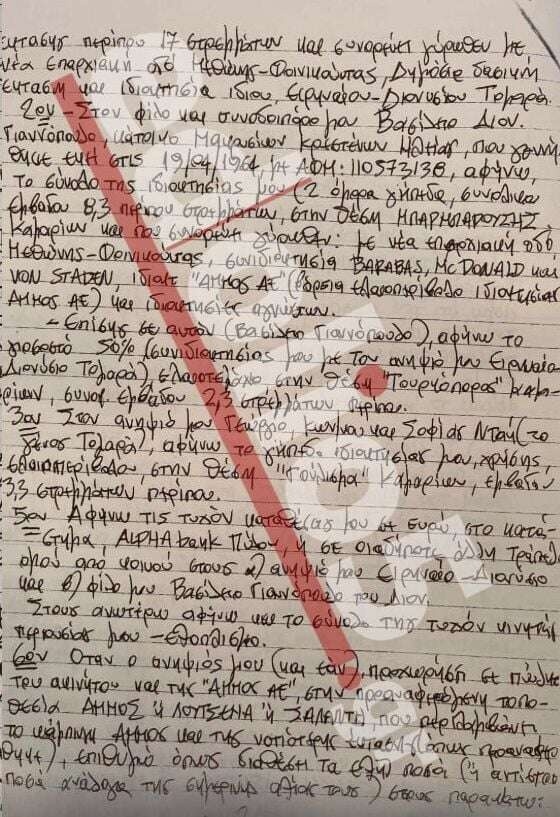 έκτασης περίπου 17 στρεμμάτων και συνορεύει γύρωθεν με
νέα επαρχιακή οδό Μεθώνης-Φοινικούντας, Δημόσια δασική
έκταση και ιδιοκτησία ιδίου, Ειρηναίου-Διονυσίου Τομαρά.
2ον - Στον φίλο και συνοδοιπόρο μου Βασίλειο Διον.
Γιαννόπουλο, κάτοικο Μακρισίων Κρεστένων Ηλείας, που γεννή
θηκε εκεί στις 19/04/1964, με ΑΦΜ: 110573138, αφήνω
το σύνολο της ιδιοκτησίας μου (2 όμορα γήπεδα, συνολικού
εμβαδού 8,3 περίπου στρεμμάτων, στην θέση ΜΠΑΡΜΠΑΡΟΥΣΗΣ
Καμαρίων και που συνορεύει γύρωθεν: με νέα επαρχιακή οδό
Μεθώνης-Φοινικούντας, συνιδιοκτησία BARABAS, McDONALD και
VON STADEN, ιδιοκτ. "ΑΜΜΟΣ ΑΕ" (βόρεια ελαιοπερίβολο ιδιοκτησίας
ΑΜΜΟΣ ΑΕ) και ιδιοκτησίες αγνώστων.
- Επίσης σε αυτόν (Βασίλειο Γιαννόπουλο), αφήνω το
ποσοστό 50% (συνιδιοκτησίας μου με τον ανηψιό μου Ειρηναίο
Διονύσιο Τομαρά), ελαιοτεμάχιο στην θέση "Τουρκόπορος" Καμα-
ρίων, συνολ. εμβαδού 2,3 στρεμμάτων περίπου.
3ον Στον ανηψιό μου Γεώργιο, Κων/νου και Σοφίας Ντάη (το
γένος Τομαρά), αφήνω το γήπεδο ιδιοκτησίας μου, χρήσης
ελαιοπερίβολου, στην θέση Καμαρίων, εμβαδού
3,3 στρεμμάτων περίπου.
5ον Αφήνω τις τυχόν καταθέσεις μου σε Ευρώ, στο κατά-
στημα, ALPHA bank Πύλου, ή σε οιαδήποτε άλλη Τράπεζα
όμου από κοινού στους α) ανηψιό μου Ειρηναίο-Διονύσιο
και β) φίλο μου Βασίλειο Γιαννόπουλο του Διον.
Στους ανωτέρω αφήνω και το σύνολο της τυχόν κινητής
περιουσίας μου - εξοπλισμό.
6ον Όταν ο ανηψιός μου (και εάν), προχωρήση σε πώληση
του ακινήτου και της "ΑΜΜΟΣ ΑΕ", στην προαναφερόμενη τοπο-
θεσία ΑΜΜΟΣ ή ΛΟΥΤΣΕΝΑ ή ΣΑΛΑΝΤΗ, που περιλαμβάνει
το κάμπινγκ ΑΜΜΟΣ και της νοτιότερης έκτασης (όπως προαναφέρ
θηκε), επιθυμώ όπως διαθέσει τα εξής ποσά (ή αντίστοιχα
ποσά ανάλογα της σημερινής αξίας τους) στους παρακάτω: